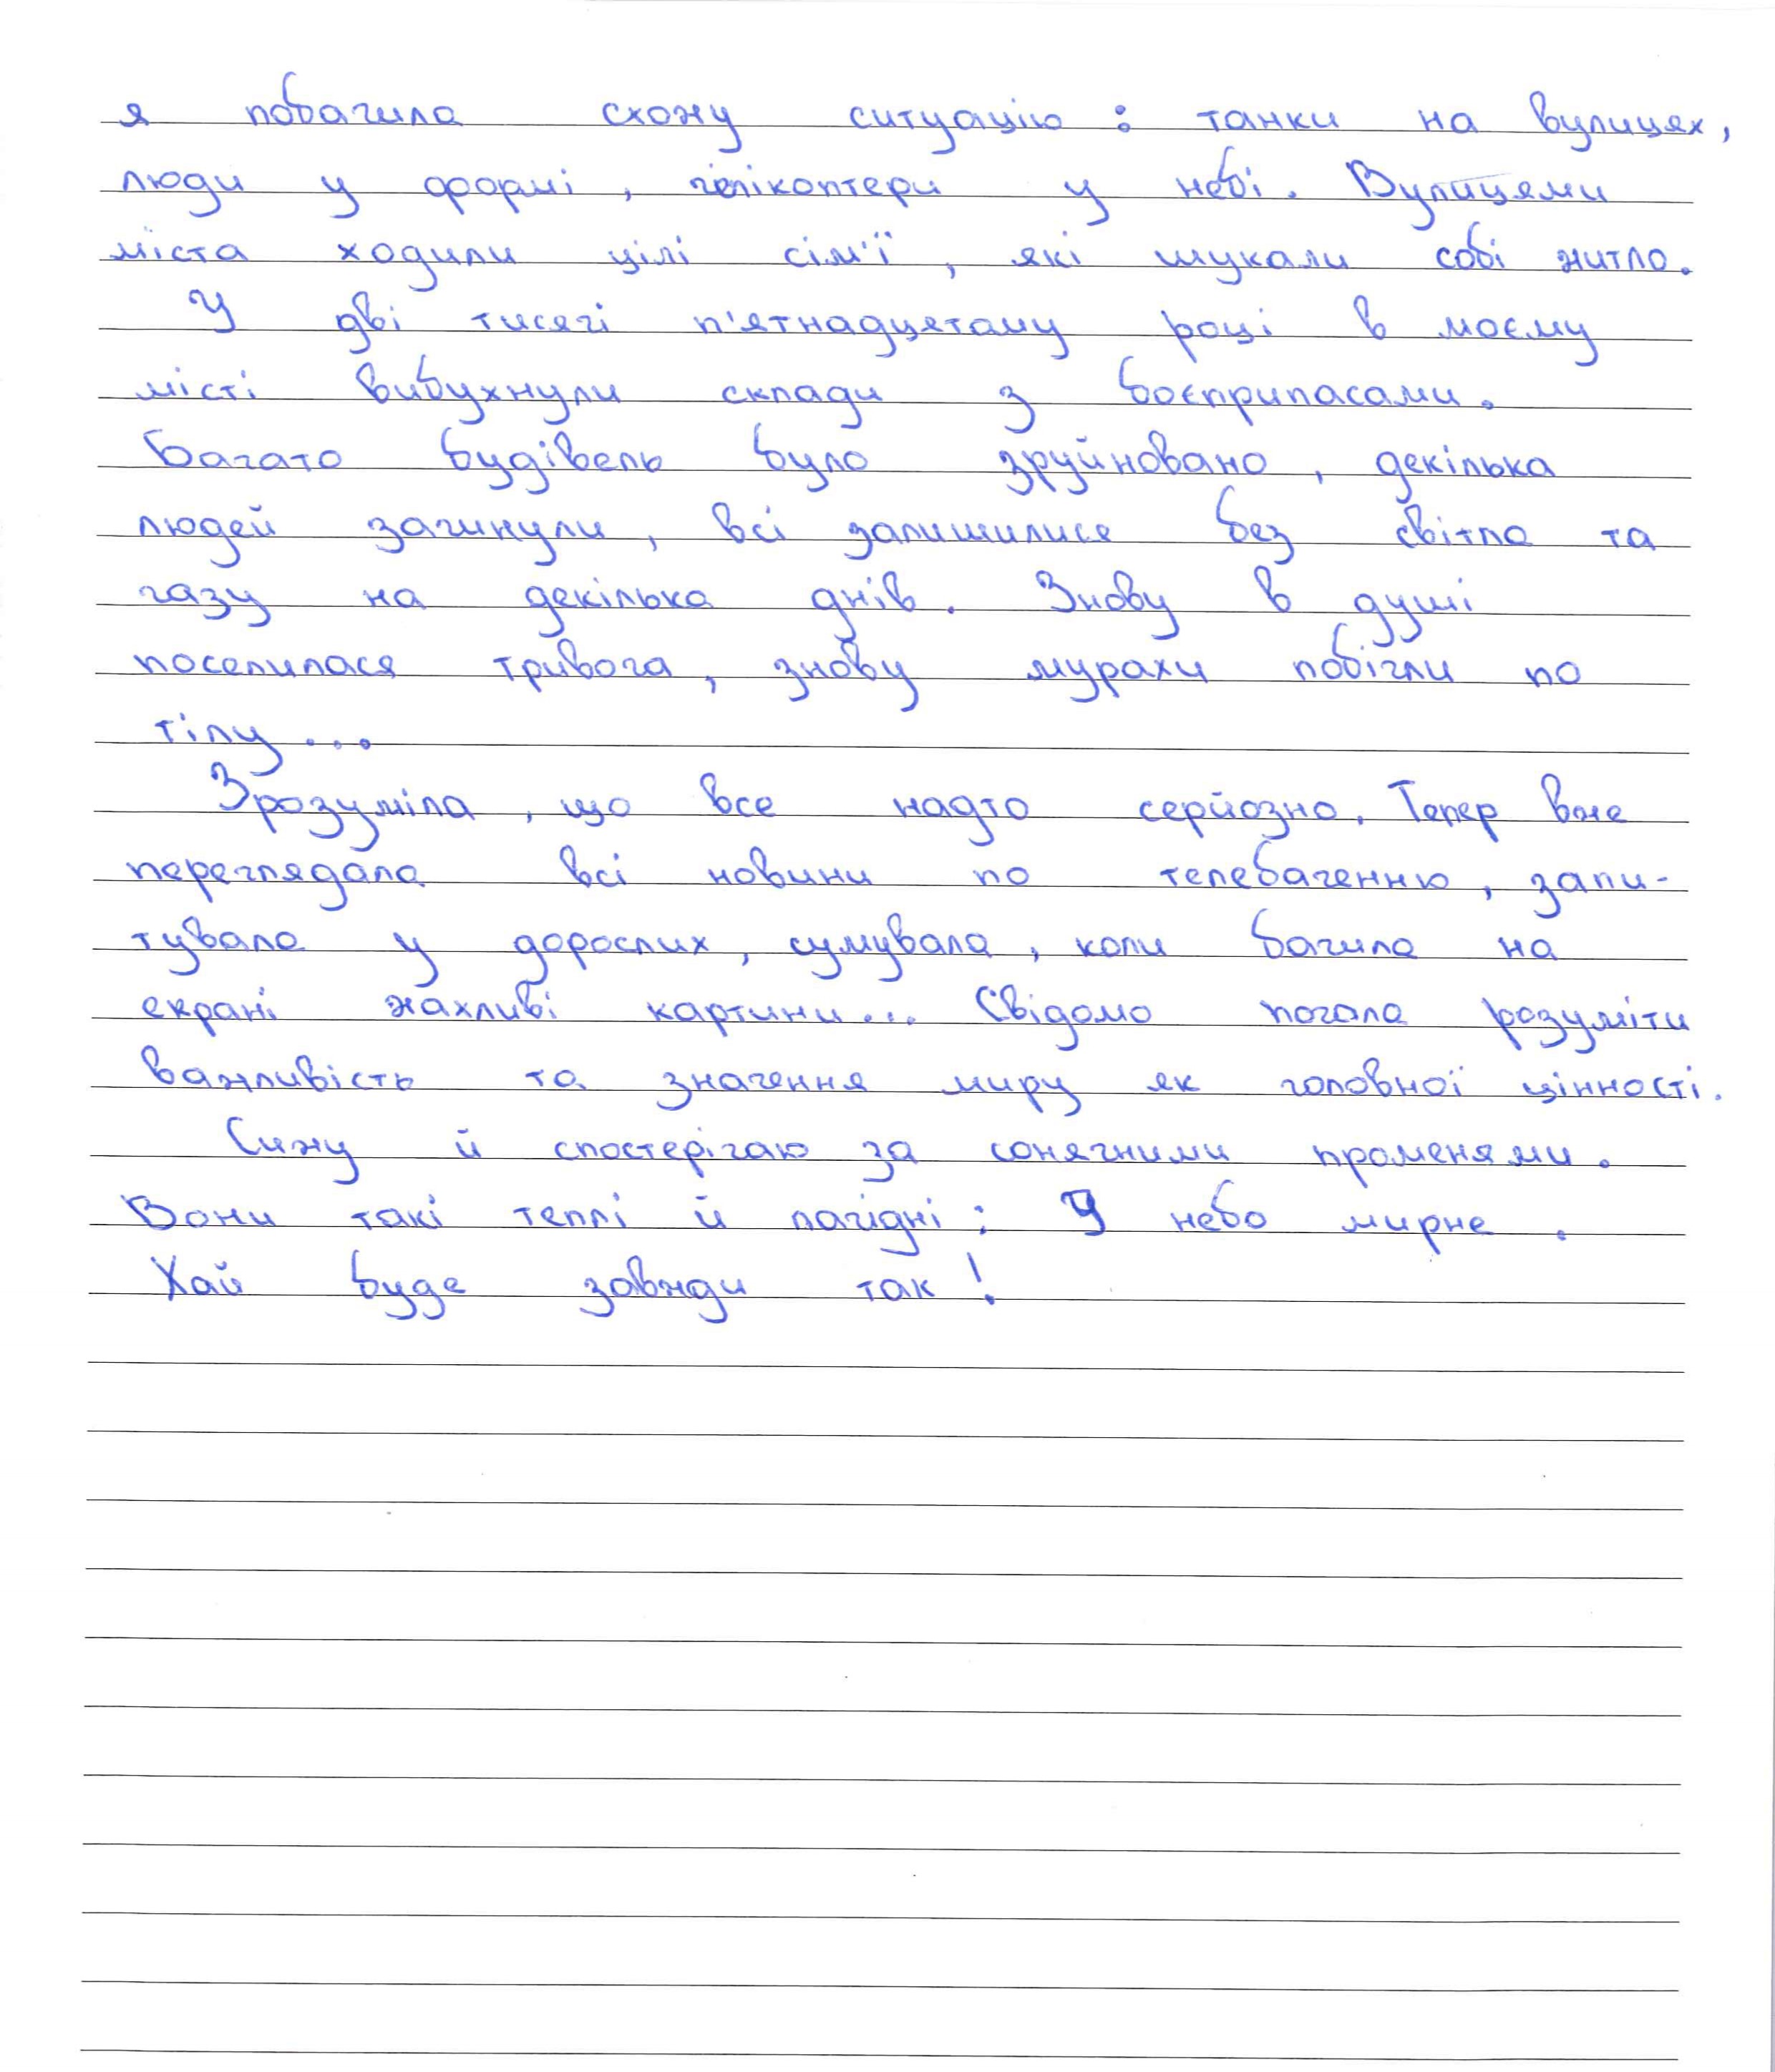 я побачила схожу ситуацію: танки на вулицях,
люди у формі, гелікоптери у небі. Вулицями
міста ходили цілі сім'ї, які шукали собі житло.
У дві тисячі п'ятнадцятому році в моєму
місті вибухнули склади з боєприпасами.
Багато будівель було зруйновано, декілька
людей загинули, всі залишилися без світла та
газу на декілька днів. Знову в душі
поселилася тривога, знову мурахи побігли по
тілу...
Зрозуміла, що все надто серйозно. Тепер вже
переглядала всі новини по телебаченню, запи-
тувала у дорослих, сумувала, коли бачила на
екрані жахливі картини... Свідомо почала розуміти
важливість та значення миру як головної цінності.
Сижу й спостерігаю за сонячними променями.
Вони такі теплі й лагідні; У небо мирне.
Хай буде завжди так!